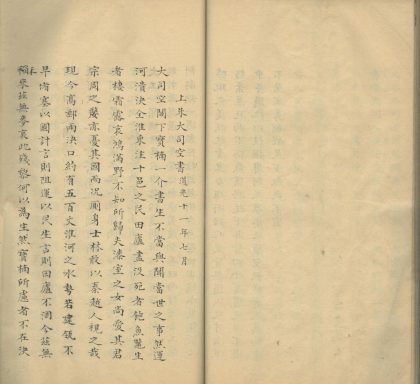 上朱大司空書道光十一年七月
大司空閣下寶楠一介書生不當與聞當世之事然運
河潰決全淮東注十邑之民田廬盡沒死者飽魚鼈生
者棲霜露哀鴻滿野不知所歸夫漆室之女尚憂其君
宗周之嫠亦憂其國而況廁身士林敢以秦越人視之哉
現今高郵兩決口約有五百丈淮河之水勢若建瓴不
早堵塞以國計言則阻運以民生言則田廬不涸今茲無
禾來茲無麥哀此殘黎何以為生然寶楠所慮者不在決